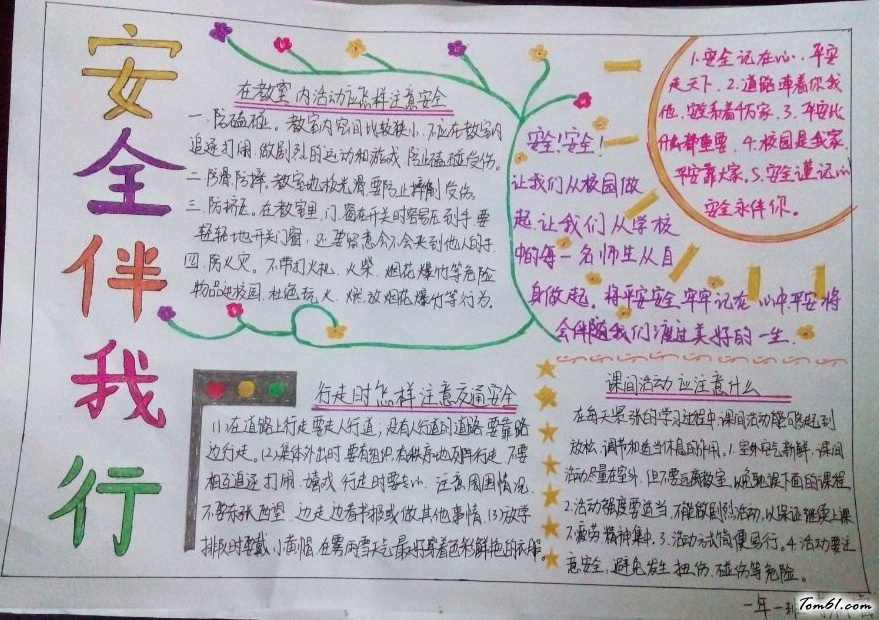 安全伴我行
在教室内活动应怎样注意安全
一、防磕碰。教室内空间比较狭小,不应在教室内
追逐打闹,做剧烈的运动和游戏,防止磕碰受伤。
二、防滑、防摔,教室地板光滑要防止摔倒受伤。
三、防挤压。在教室里,门、窗在开关时容易压到手,要
轻轻地开关门窗,还要留意会不会夹到他人的手.
四、防火灾。不带打火机、火柴、烟花爆竹等危险
物品进校园,杜绝玩火、燃放烟花爆竹等行为。
安全!安全!
让我们从校园做
起,让我们从学校
中的每一名师生从自
身做起。将平安安全牢牢记在心中,平安将
会伴随我们渡过美好的一生.
1.安全记在心,平安
走天下.2.道路牵着你我
他,安全系着千万家.3.平安比
什么都重要.4.校园是我家,
平安靠大家.5.安全谨记心
安全永伴你。
行走时怎样注意交通安全
(1)在道路上行走,要走人行道;没有人行道的道路,要靠路
边行走。(2)集体外出时,要有组织有秩序地列队行走,不要
相互追逐、打闹、嬉戏,行走时要专心,注意周围情况,
不要东张西望、边走边看书报或做其他事情.(3)放学
排队时要戴小黄帽,在雾雨雪天气,最好穿着色彩鲜艳的衣服。
课间活动应注意什么
在每天紧张的学习过程中,课间活动能够起到
放松、调节和适当休息的作用。1.室外空气新鲜,课间
活动尽量在室外,但不要远离教室,以免耽误下面的课程.
2.活动强度要适当,不能做剧烈活动,以保证继续上课
不疲劳,精神集中.3.活动方式简便易行。4.活动要注
意安全,避免发生扭伤、碰伤等危险。
一年一班
Tom61.com